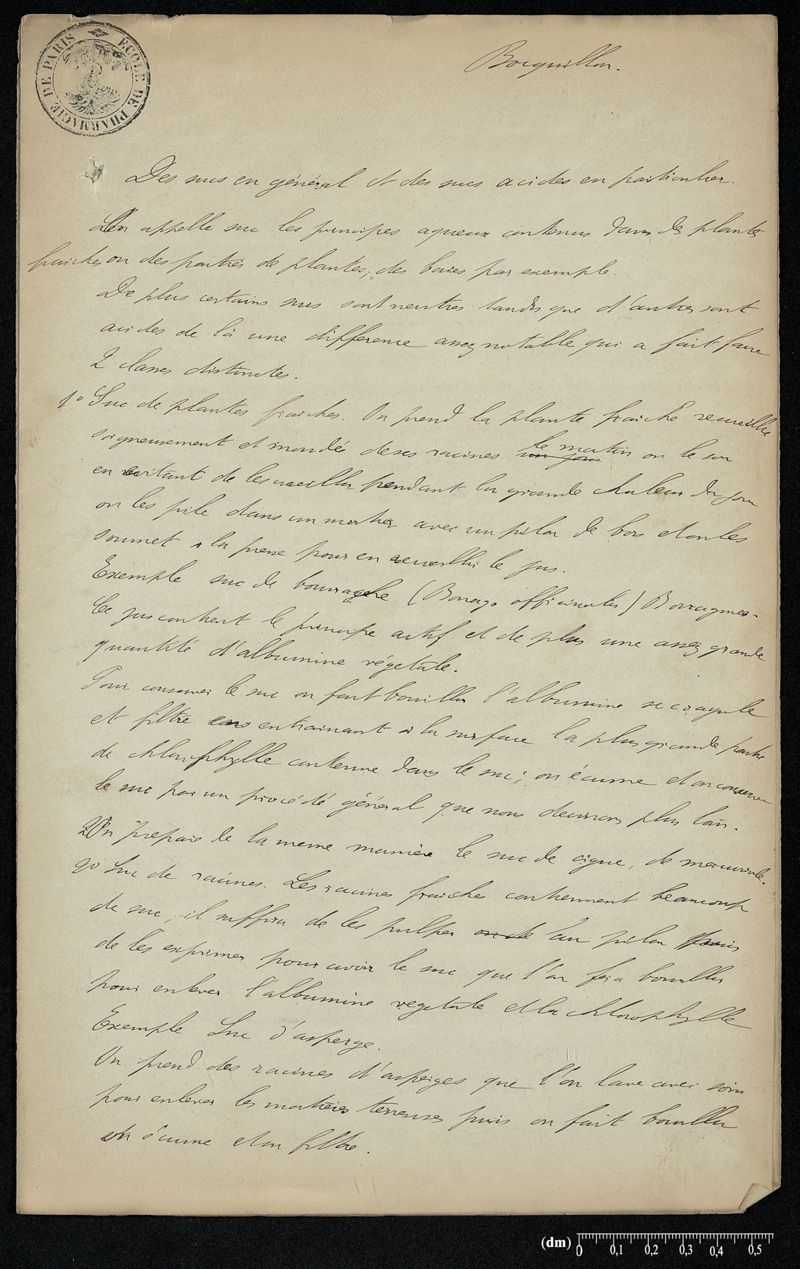 ÉCOLE DE PHARMACIE DE PARIS
Bocquillon.
Des sucs en général et des sucs acides en particulier.
On appelle suc les principes aqueux contenus dans des plantes
fraiches ou des parties de plantes, des baies par exemple.
De plus certains sucs sont neutres tandis que d'autres sont
acides de là une différence assez notable qui a fait faire
2 classes distinctes.
1º Suc de plantes fraiches. On prend la plante fraiche recueillie
soigneusement et mondée de ses racines le matin ou le soir
en evitant de les cueillir pendant la grande chaleur du jour
on les pile dans un mortier avec un pilon de bois et on les
soumet a la presse pour en recueillir le jus.
Exemple suc de bourrache (Borrago officinalis) Borraginées.
Ce jus contient le principe actif et de plus une assez grande
quantité d'albumine végétale.
Pour conserver le suc on fait bouillir l'albumine se coagule
et filtre entrainant à la surface la plus grande partie
de chlorophylle contenue dans le suc; on écume et on conserve
le suc par un procédé général que nous decrirons plus loin.
On prepare de la meme maniere le suc de cigue, de mercuriale.
2º Suc de racines. Les racines fraiches contiennent beaucoup
de suc, il suffira de les pulper au pilon puis
de les exprimer pour avoir le suc que l'on fera bouillir
pour enlever l'albumine vegetale et la chlorophylle
Exemple Suc d'asperge.
On prend des racines d'asperges que l'on lave avec soin
pour enlever les matieres terreuses puis on fait bouillir
on écume et on filtre.
(dm) 0 0,1 0,2 0,3 0,4 0,5